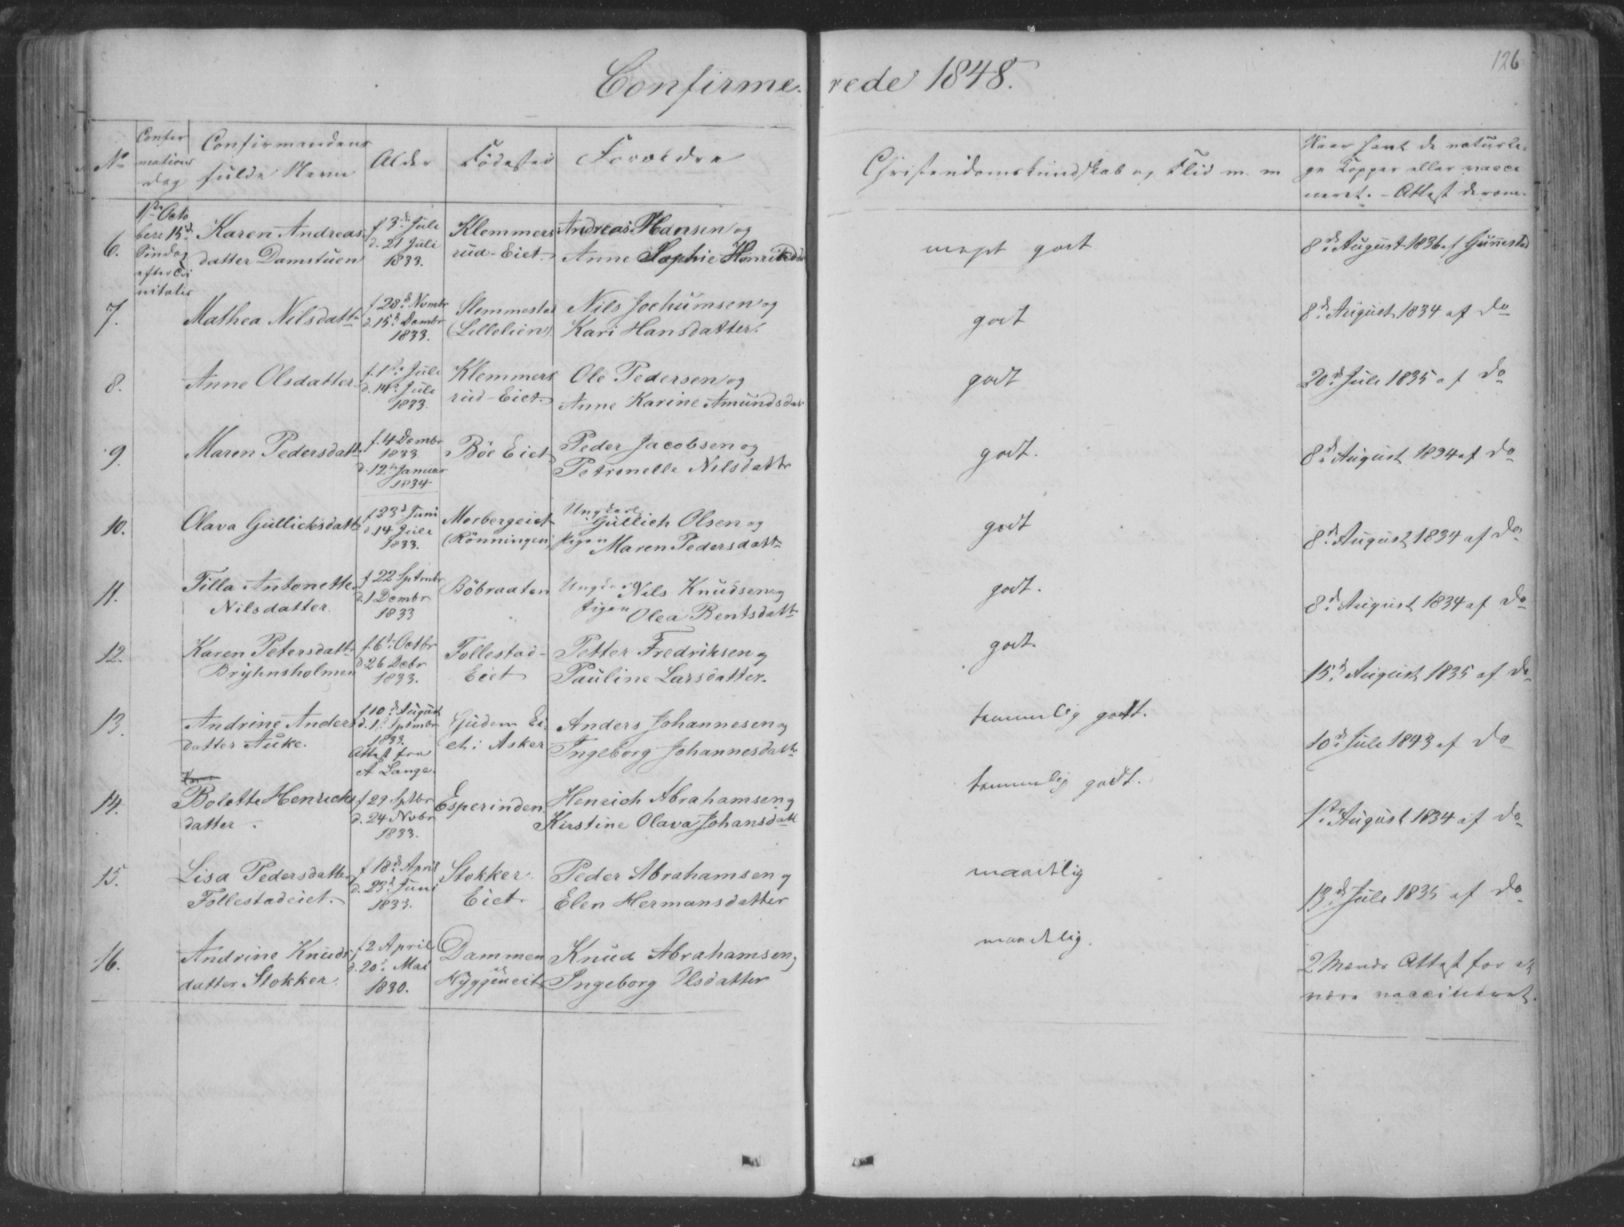 Confirmerede 1848.
126
No
Confirmations dag
Confirmandens fulde Navn
Alder
Fødested
Forældre
Christendomskundskab og Flid m. m
Have havt de naturlige Kopper eller vaccineret. - Attest derom.
1ste Octobere 15d Søndag efter Trinitatis
6. Karen Andreasdatter Damstuen
f 3d Juli d. 21 Juli 1833.
Klemmersrud-Eiet
Andreas Hansen og Anne Sophie
meget godt
8d August 1836 af
7. Mathea Nilsdattr
f 28d Novmbr d. 15d Decmbr 1833.
Slemmestad (Lillelien)
Nils Jochumsen og Kari Hansdatter.
godt
8d August 1834 af do
8. Anne Olsdatter
f. 1ste Juli d. 14d Juli 1833.
Klemmersrud-Eiet
Ole Pedersen og Anne Karine Amundsdar
godt
20d Juli 1835 af do
9. Maren Pedersdattr
f. 4 Decmbr 1833 d. 12te Januar 1834
Böe Eiet
Peder Jacobsen og Petronelle Nilsdattr
godt.
8d August 1834 af do
10. Olava Gullichsdattr
f 23d Juni d. 14 Juli 1833.
Morbergeiet (Rönningen)
Ungkarl Gullich Olsen og Pigen Maren Pedersdattr
godt
8d August 1834 af do
11. Tilla Antonette Nilsdatter
f 22 Sptmbr d. 1 Decmbr 1833
Böbraaten
Ungkarl Nils Knudsen og Pigen Olea Bentsdattr
godt.
8d August 1834 af do
12. Karen Petersdattr Bryhnsholmen
f. 6te Octbr d. 26 Decbr 1833.
Follestad-Eiet
Petter Fredriksen og Pauline Larsdatter.
godt.
15d August 1835 af do
13. Andrine Andersdatter Auke.
f 10d August d. 1ste Sptmbr 1833. Attest fra A Lange.
Gudem Eiet i Asker
Anders Johannesen og Ingeborg Johannesdattr
temmelig godt.
10d Juli 1843 af do
14. Bolette Henrichsdatter.
f 29. Sptbr d. 24 Novbr 1833.
Esperinden
Henrich Abrahamsen og Kirstine Olava Johansdatt
temmelig godt.
1ste August 1834 af do
15. Lisa Pedersdatter Follestadeiet.
f 18d April d. 23d Juni 1833.
Stokker Eiet
Peder Abrahamsen og Elen Hermansdatter
maadelig
13d Juli 1835 af do
16. Andrine Knudsdatter Stokker.
f 2 April d. 20d Mai 1830.
Dammen
Knud Abrahamsen og Ingeborg Olsdatter
maadelig.
2 Mænds Attest for at være vaccineret.